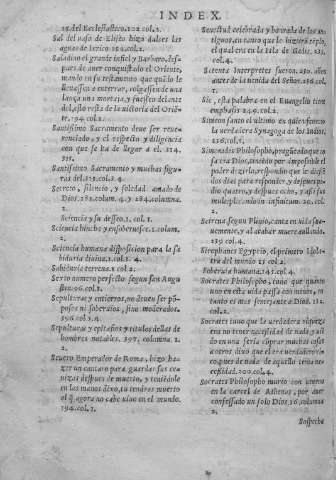 INDEX.
15. del Ecclesiastico. 202. col. 2.
Sal del vaso de Eliseo hizo dulces las
aguas de Ierico 152. col. 2.
Saladino el grande infiel y Barbaro, des
pues de auer conquistado el Oriente,
mando en su testamento que quãdo le
lleuassen a enterrar, colgassen de una
lança una mortaja, y fuessen del ante
del, esto resta de la victoria del Oriẽ-
te. 194. col. 2.
Santissimo Sacramento deue ser reue-
renciado, y el respecto y diligencia
con que se ha de llegar a el. 214.
Santissimo Sacramento y muchas figu-
ras del. 218. col. 2. 4.
Secreto, silencio, y soledad amado de
Dios. 281. colum. 4. y 284. columna.
2.
Sciencia y su desseo. 1. col. 1.
Sciencia hinche y ensoberuece. 1. colum.
2.
Sciencia humana disposicion para la sa
biduria diuina. 1. col. 4.
Sabiduria terrena. 1. col. 2.
Seruo numero perfecto: segun san Augu
stin. 90. col. 1.
Sepulturas y entierros, no deuen ser põ-
posos ni soberuios, sino moderados.
396. col. 3. 4.
Sepulturas y epitafios y titulos dellas de
hombres notables. 397. columna. 1.
2.
Seuero Emperador de Roma, hizo ha-
zer un cantaro para guardar sus ce-
nizas despues de muerto, y teniẽdole
en las manos dixo, tu tendras muerto
el q̃ agora no cabe uiuo en el mundo.
194. col. 2.
Senectud celebrada y honrada de los an
tiguos,
el qual era en la Isla de
col. 4.
Setenta Interpretes fueron, 230. años
antes de la uenida del Señor. 256. col.
1.
Sic, esta palabra en el Euangelio tiene
emphasis. 240. col. 2.
Simeon santo el ultimo en quiẽ fenescio
la uerdadera Synagoga de los Indios.
226. col. 2.
Simonides Philosopho, pregũtado que co
sa era Dios, uiendo por impossible el
poder dezirlo, respondio que le diessẽ
dos dias para responder, y despues pi-
dio quatro, y despues ocho, y assi fue
multiplicando en infinitum. 20. col.
2.
Sirena segun Plinio, canta en uida sua-
uemente, y al acabar muere aullando.
229. col. 4.
Sirophanes Egypcio, el primero idola-
tra del mundo 25. col. 2.
Soberuia humana. 145. col. 4.
Socrates Philosopho, tuuo que quanto
uno en esta uida passa con menos, en
tanto es mas semejante a Dios. 112.
col. 2.
Socrates tuuo que la uerdadera riqueza
era no tener necesidad de nada, y uiẽ
do en una feria cõprar muchas cosas
a otros dixo que el era uerdadero ri-
co que de nada de aquello tenia ne-
cessidad. 200. col. 4.
Socrates Philosopho murio con ueneno
en la carcel de Athenas, por auer
confessado un solo Dios. 16. columna
2.
Sospecha